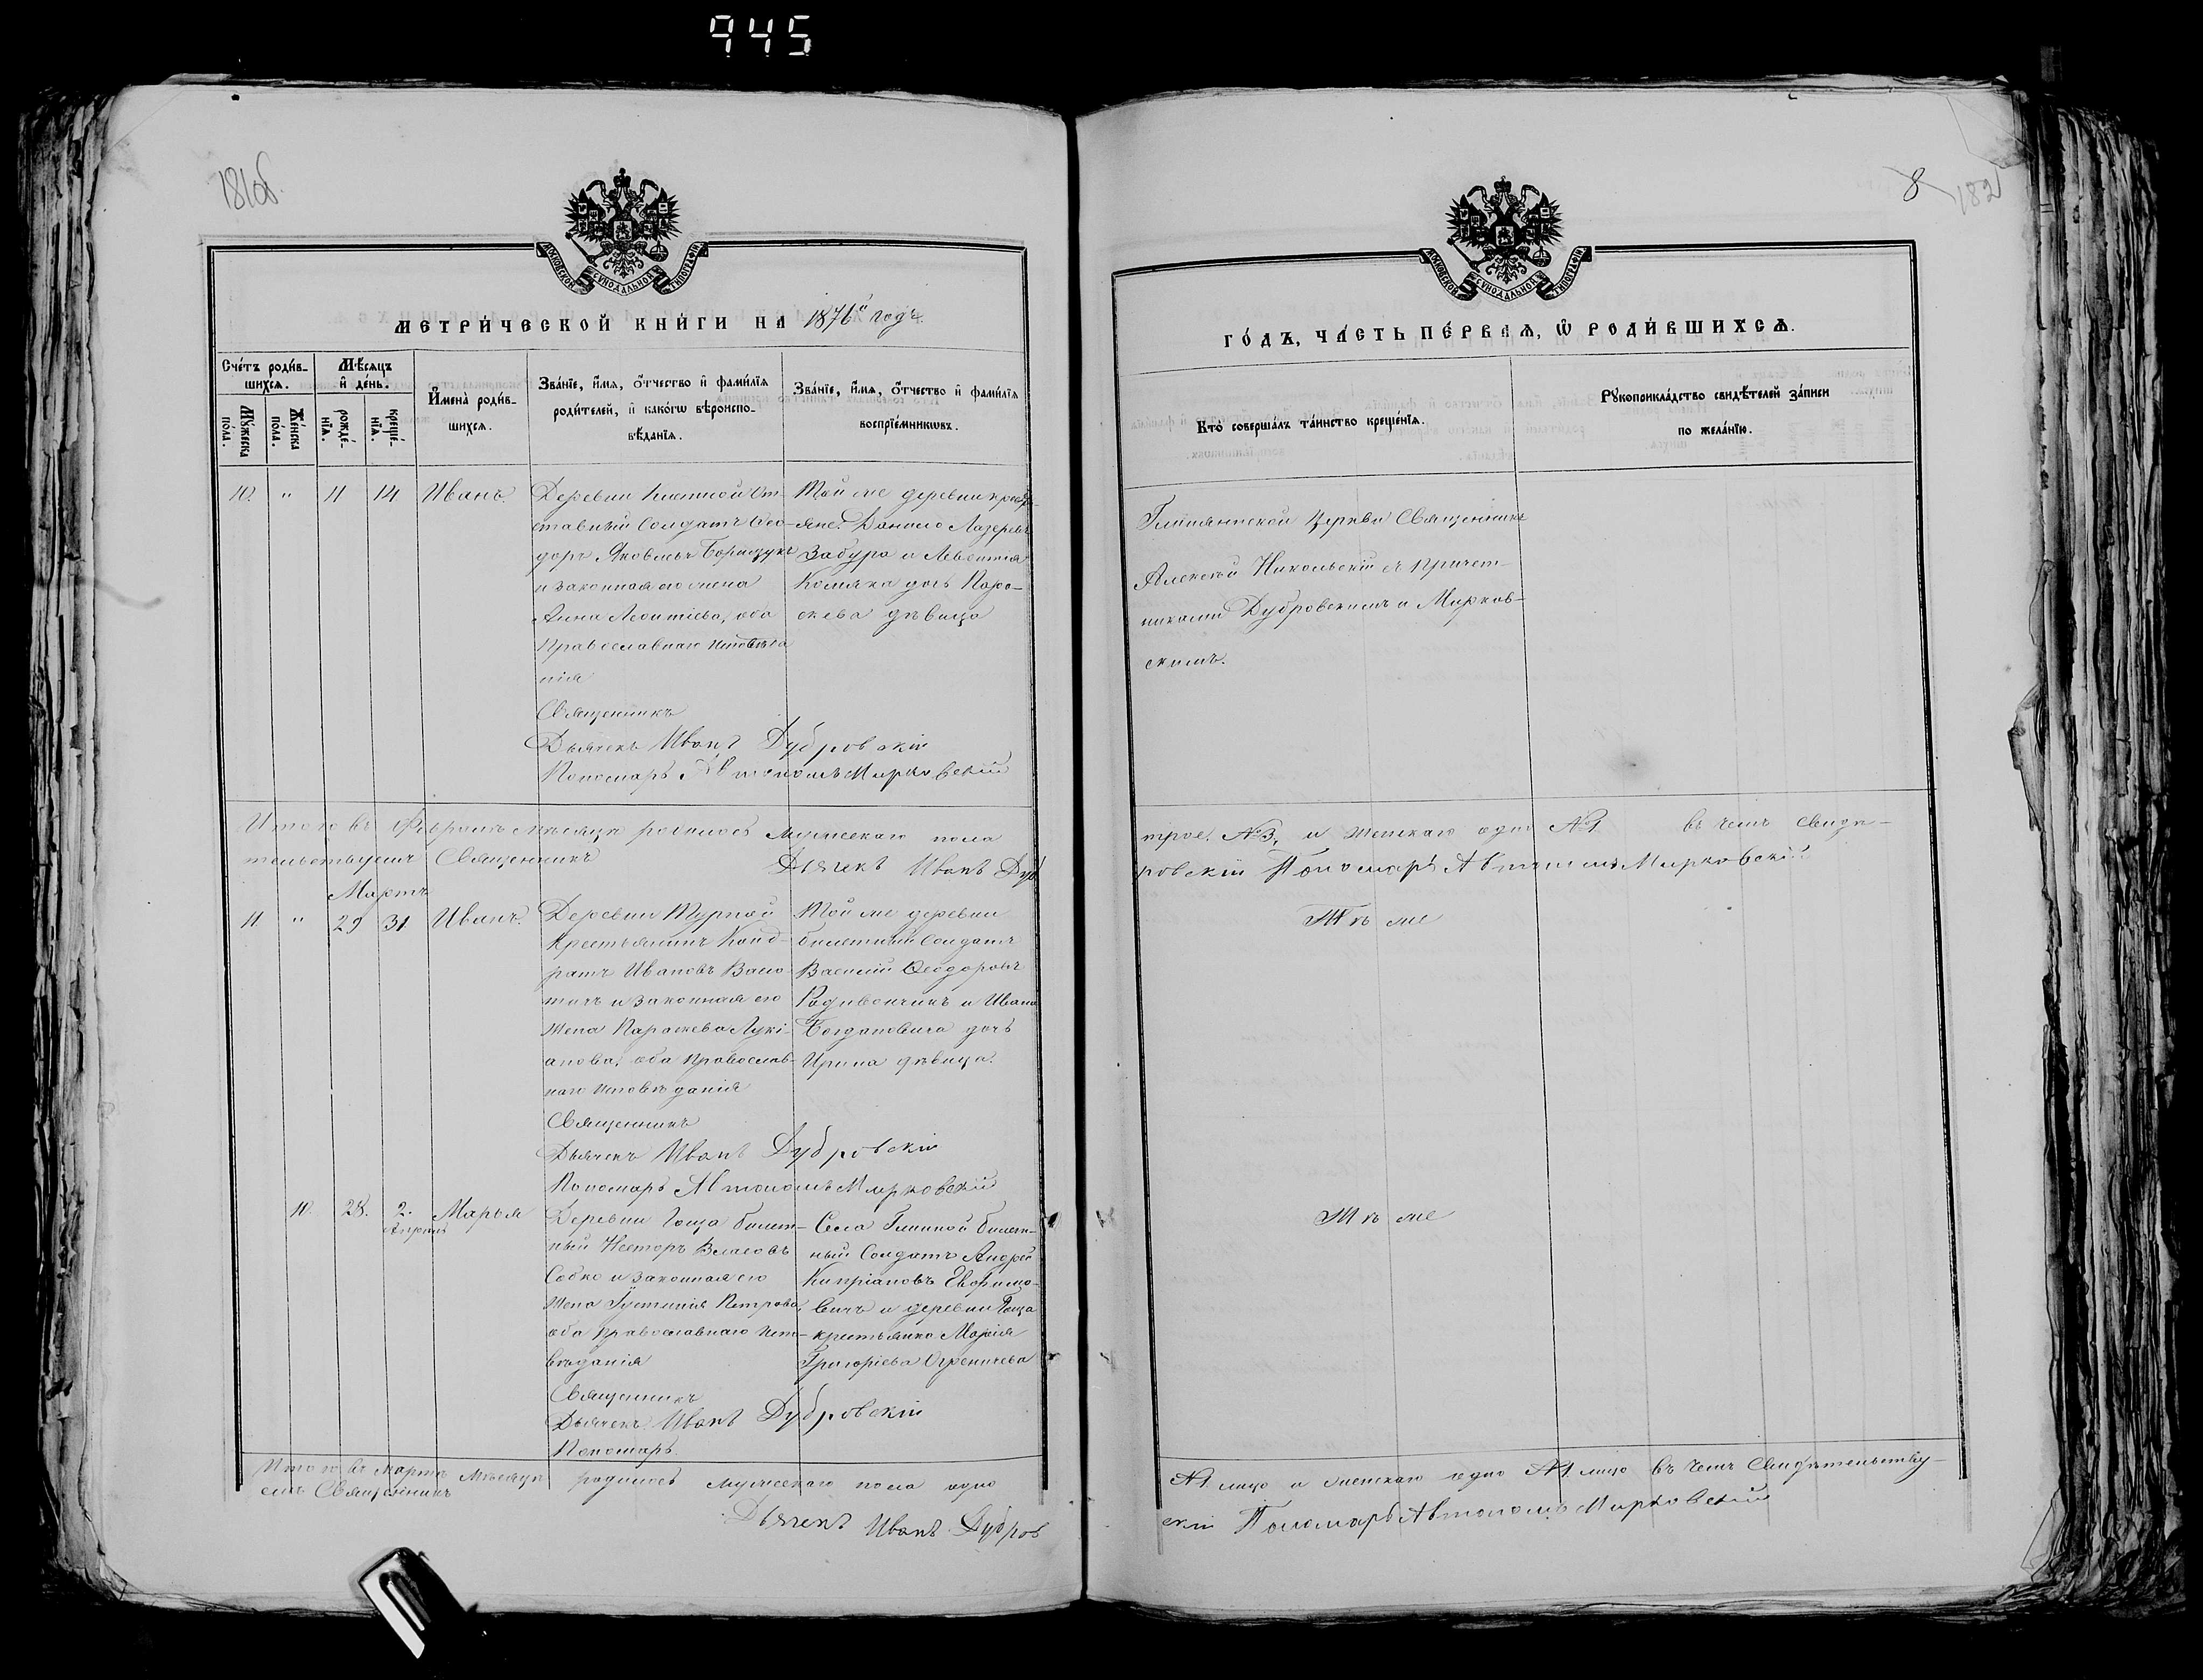 945
181 об.
МОСКОВСКОЙ СУНОДАЛЬНОЙ ТИПОГРАФІИ
МЕТРИ́ЧЕСКОЙ КНИ́ГИ НА 1876й годъ.
Сче́тъ роди́в-
шихсѧ.
Мѣ́сяцъ
и҆ де́нь.
И҆мена̀ роди́в-
шихсѧ.
Зва́нїе, и҆́мѧ, ѻ҆́тчество и҆ фами́лїѧ
роди́телей, и҆ како́гѡ вѣроиспо-
вѣ́данїѧ.
Зва́нїе, и҆́мѧ, ѻ҆́тчество и҆ фами́лїѧ
воспрїе́мникѡвъ.
Мꙋ́жеска
по́ла.
Же́нска
по́ла.
рожде́-
нїѧ.
креще́-
нїѧ.
10. " 11 14 Иванъ.
Деревни От-
ставный Солдатъ Ѳео-
доръ Яковлевъ Борищукъ
и законная его жена
Анна Леонтіева, оба
Православнаго исповѣда
нія
Священникъ
Дьячекъ Иванъ Дубровскій
Пономарь Автономъ Мирковскій
Той же деревни крестья-
не: Данило Лазеревъ
Забура и Левонтія
Комяка дочь Пара-
скева дѣвица
Итого въ Февралѣ мѣсяцѣ родилось мужескаго пола
тельствуемъ Священникъ Дьячекъ Иванъ Дуб
Мартъ
11 " 29 31 Иванъ.
Деревни Турной
Крестьянинъ Конд-
ратъ Ивановъ Вало-
тичъ и законная его
жена Параскева Лукі-
анова, оба Православ-
наго исповѣданія
Священникъ
Дьячекъ Иванъ Дубровскій
Пономарь Автономъ Мирковскій
Той же деревни
билетный Солдатъ
Василій Ѳеодоровъ
Радивончикъ и Ивана
Богдановича дочь
Ирина дѣвица.
10. 28. 2. Марья
Апрѣля
Деревни Гоща билет-
ный Несторъ Власовъ
Собко и законная его
жена Іустинія Петрова,
оба православнаго испо-
вѣданія
Священникъ
Дьячекъ Иванъ Дубровскій
Пономарь
Села Глинной билет-
ный Солдатъ Андрей
Кипріановъ Евфимо-
вичъ и деревни Гоща
крестьянка Марія
Григоріева Огреничева
Итого въ Мартѣ мѣсяцѣ родилось мужескаго пола одно
емъ Священникъ
Дьячекъ Иванъ Дубров
8
182
МОСКОВСКОЙ СУНОДАЛЬНОЙ ТИПОГРАФІИ
ГО́ДЪ, ЧА́СТЬ ПЕ́РВАѦ, Ѡ҆ РОДИ́ВШИХСѦ.
Кто̀ соверша́лъ та́инство креще́нїѧ.
Рꙋкоприкла́дство свидѣ́телей за́писи
по жела́нїю.
Глинянской Церкви Священникъ
Алексѣй Никольскій съ причет-
никами Дубровскимъ и Мирков-
скимъ.
трое. №3, и женскаго одно №1 въ чемъ свидѣ-
ровскій Пономарь Автономъ Мирковскій
Тѣ же
Тѣ же
№1 лицо и женскаго одно №1 лицо въ чемъ свидѣтельству-
скій Пономарь Автономъ Мирковскій